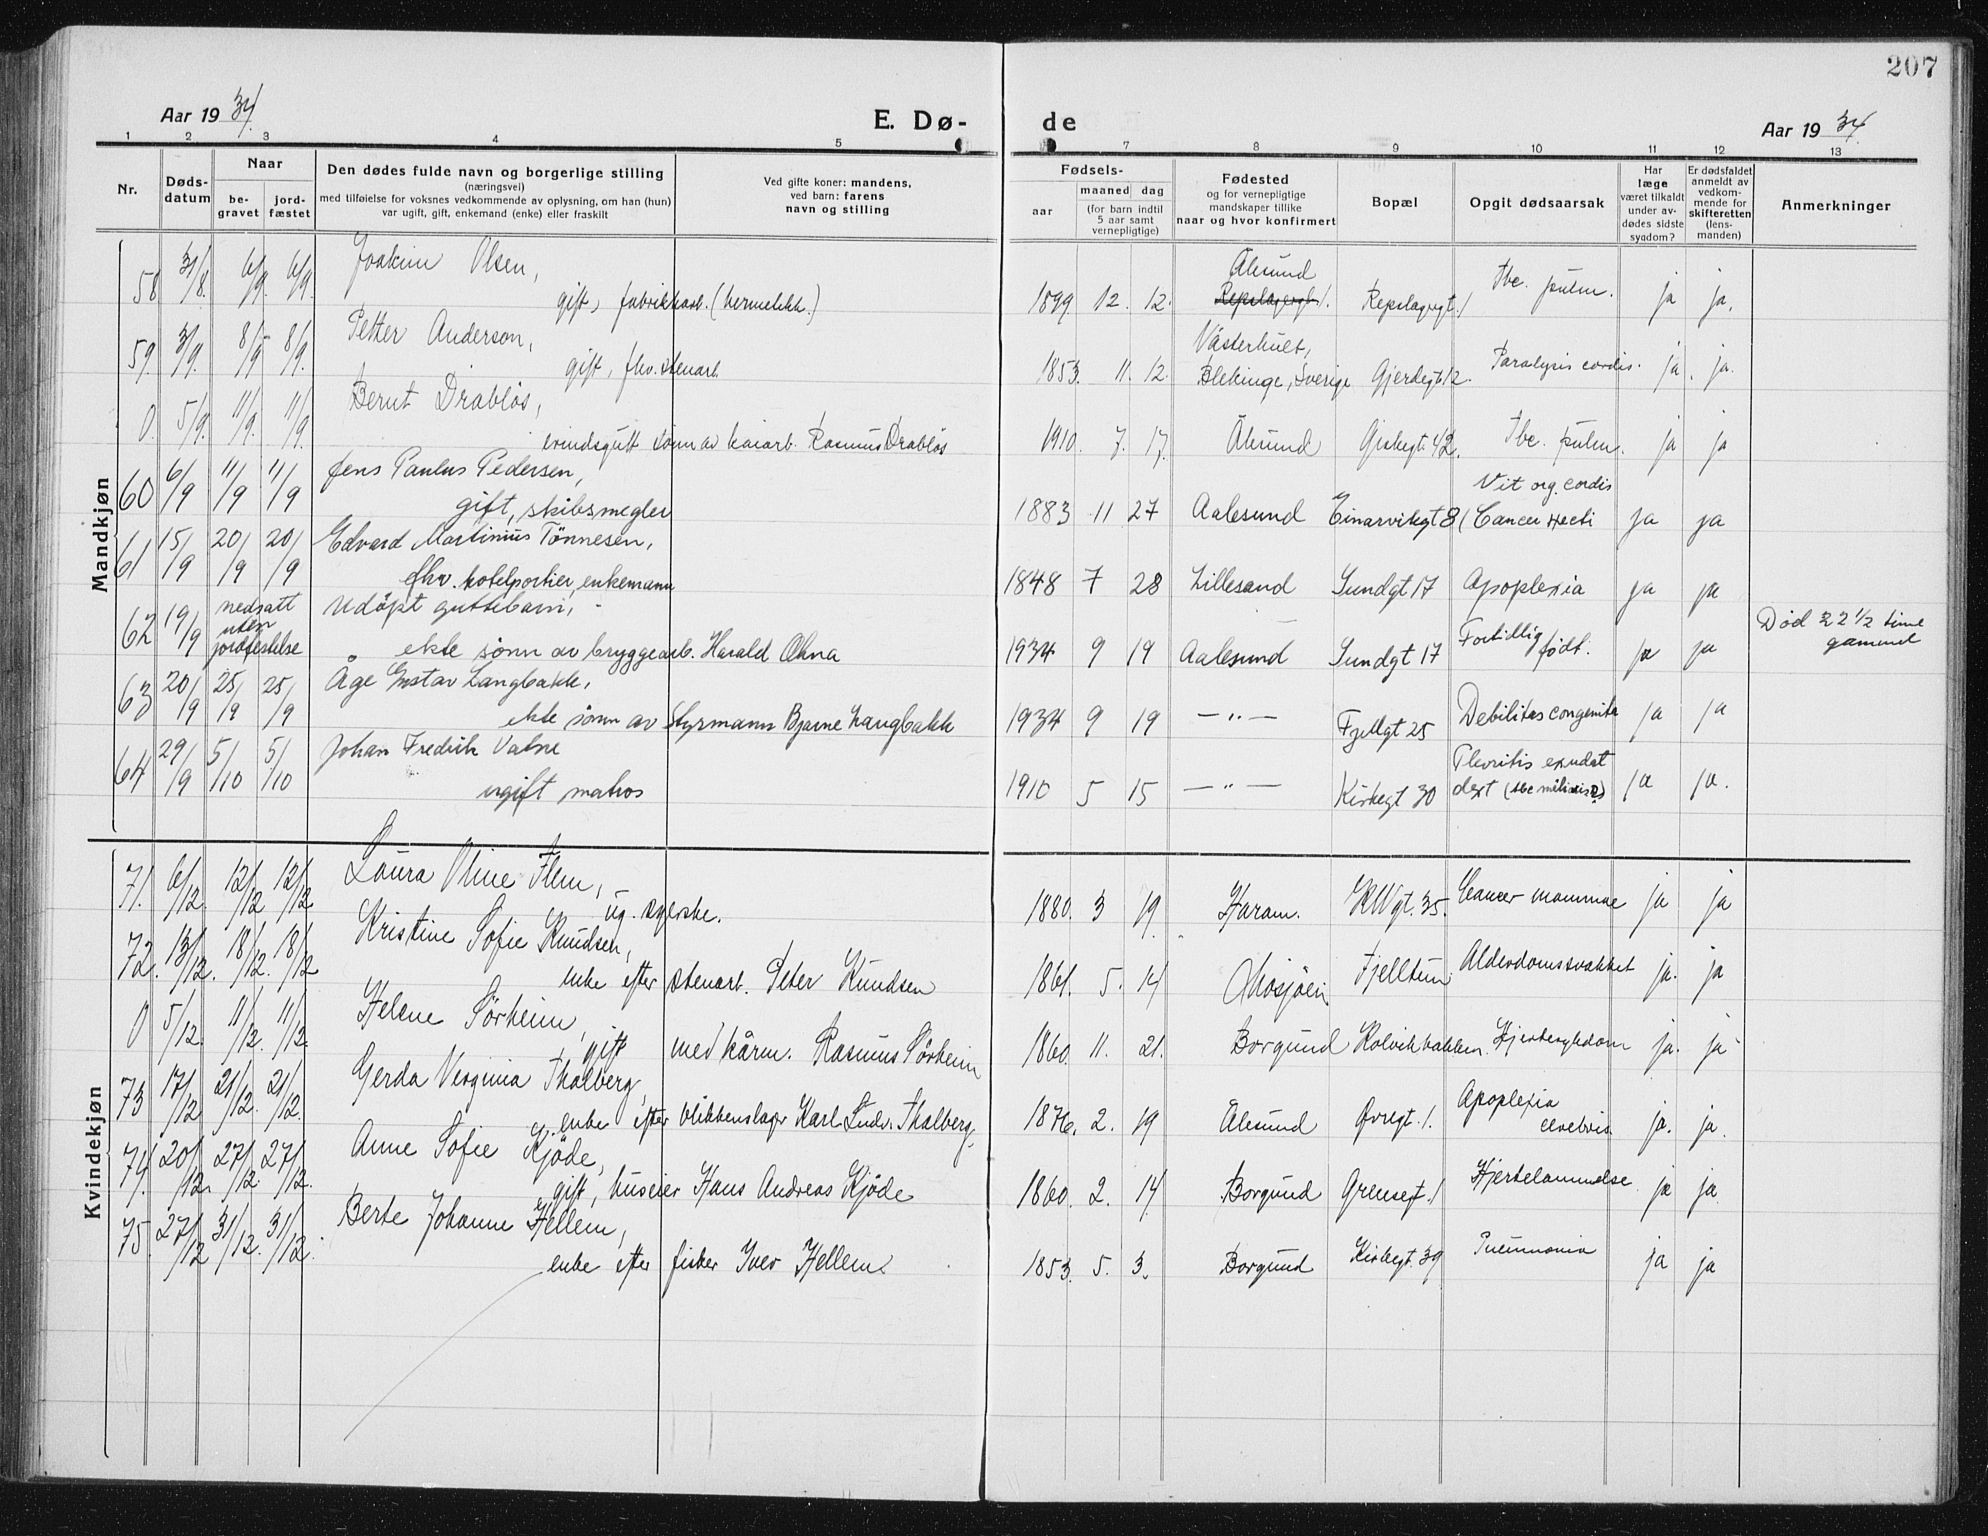 207
Aar 1934.
E. Dø-
de
Aar 1934.
1 2 3 4 5 7 8 9 10 11 12 13
Nr.
Døds-
datum
Naar
be-
gravet
jord-
fæstet
Den dødes fulde navn og borgerlige stilling
(næringsvei)
med tilføielse for voksnes vedkommende av oplysning, om han (hun)
var ugift, gift, enkemand (enke) eller fraskilt
Ved gifte koner: mandens,
ved barn: farens
navn og stilling
Fødsels-
aar
maaned dag
(for barn indtil
5 aar samt
vernepligtige)
Fødested
og for vernepligtige
mandskaper tillike
naar og hvor konfirmert
Bopæl
Opgit dødsaarsak
Har
læge
været tilkaldt
under av-
dødes sidste
sygdom?
Er dødsfaldet
anmeldt av
vedkom-
mende for
skifteretten
(lens-
manden)
Anmerkninger
Mandkjøn
58 31/8. 6/9. 6/9. Joakim Olsen,
gift, fabrikkarb. (hermetikk.)
1899 12. 12. Ålesund Repslagergt. 1 Tbc. pulm. ja ja.
59 3/9. 8/9 8/9. Petter Anderson,
gift, fhv. stenarb.
1853. 11. 12. Västerhult,
Blekinge, Sverige Gjerdegt. 12. Paralysis cordis. ja. ja.
0. 5/9. 11/9. 11/9. Bernt Drabløs,
erindsgutt sønn av kaiarb. Rasmus Drabløs
1910. 7. 17. Ålesund Giskegt. 42. Tbc. pulm. ja ja
60 6/9 11/9 11/9 Jens Paulus Pedersen,
gift, skibsmegler
1883 11 27 Aalesund Einarvikgt 8 Vit org. cordis
(Cancer recti ja ja
61 15/9 20/9 20/9 Edvard Martinius Tönnesen,
fhv. hotelportier, enkemann
1848 7 28 Lillesand Sundgt 17 Apoplexia ja ja
62 19/9 nedsatt
uten
jordfestelse
Udöpt guttebarn,
ekte sönn av bryggearb. Harald Ohna
1934 9 19 Aalesund Sundgt 17 Fortidlig
født. ja ja Död 22 1/2 time
gammel
63 20/9 25/9 25/9 Åge Gustav Langbakk,
ekte sönn av Styrmann Bjarne Langbakk
1934 9 19 — " — Fjellgt 25 Debilitas congenita ja ja
64 29/9 5/10 5/10 Johan Fredrik Vatne
ugift matros
1910 5 15 — " — Kirkegt 30 Plevritis exudat
dext (tbc miliaris?) ja ja.
Kvindekjøn
71. 6/12. 12/12 12/12 Laura Oline Flem,
ug. syerske.
1880. 3 19. Haram. 35. Cancer mammae ja ja
72. 13/12. 18/12. 18/12 Kristine Sofie Knudsen,
enke efter stenarb. Peter Knudsen
1861. 5. 14 Mosjøen Fjelltun Alderdomssvakhet ja. ja
0 5/12. 11/12. 11/12. Helene Sørheim,
gift med kårm. Rasmus Sørheim
1860. 11. 21. Borgund Kolvikbakken. Hjertesykdom ja. ja
73 17/12 21/12. 21/12. Gerda Verginia Thalberg,
enke efter blikkenslager Karl Ludv. Thalberg.
1876. 2. 19 Ålesund Øvregt. 1. Apoplexia
cerebris. ja. ja.
74. 20/12. 27/12. 27/12. Anne Sofie Kjöde,
gift, huseier Hans Andreas Kjöde
1860. 2. 14 Borgund Grensegt. 1 Hjertelammelse ja ja
75. 27/12 31/12. 31/12. Berte Johanne Hellem,
enke efter fisker Iver Hellem.
1853. 5. 3. Borgund Kirkegt. 39 Pneumonia ja ja